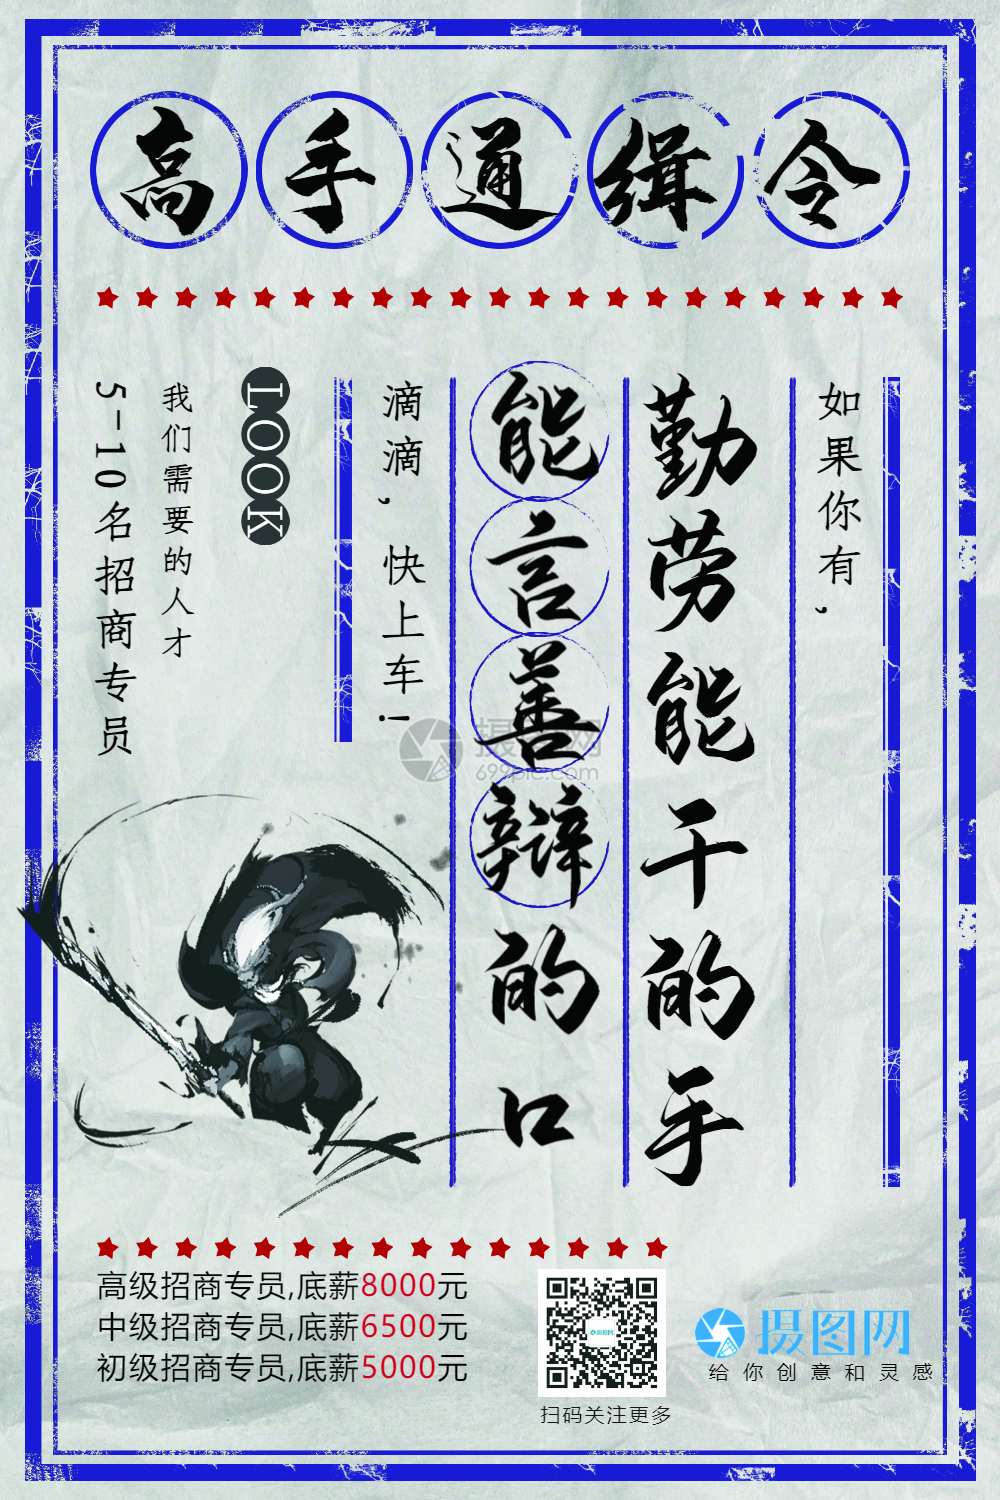 高手通缉令
如果你有，
勤劳能干的手
能言善辩的口
滴滴，快上车！
LOOK
我们需要的人才
5-10名招商专员
摄图网
699pic.com
高级招商专员,底薪8000元
中级招商专员,底薪6500元
初级招商专员,底薪5000元
摄图网
扫码关注更多
摄图网
给你创意和灵感